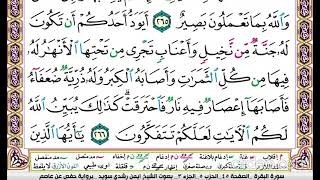 وَٱللَّهُ بِمَا تَعۡمَلُونَ بَصِيرٌ ٢٦٥ أَيَوَدُّ أَحَدُكُمۡ أَن تَكُونَ
لَهُۥ جَنَّةٞ مِّن نَّخِيلٖ وَأَعۡنَابٖ تَجۡرِي مِن تَحۡتِهَا ٱلۡأَنۡهَٰرُ لَهُۥ
فِيهَا مِن كُلِّ ٱلثَّمَرَٰتِ وَأَصَابَهُ ٱلۡكِبَرُ وَلَهُۥ ذُرِّيَّةٞ ضُعَفَآءُ
فَأَصَابَهَآ إِعۡصَارٞ فِيهِ نَارٞ فَٱحۡتَرَقَتۡۗ كَذَٰلِكَ يُبَيِّنُ ٱللَّهُ
لَكُمُ ٱلۡأٓيَٰتِ لَعَلَّكُمۡ تَتَفَكَّرُونَ ٢٦٦ يَٰٓأَيُّهَا ٱلَّذِينَ
سورة البقرة الصفحة ٤٥ الحزب ٥ الجزء ٣ بصوت الشيخ أيمن رشدي سويد برواية حفص عن عاصم